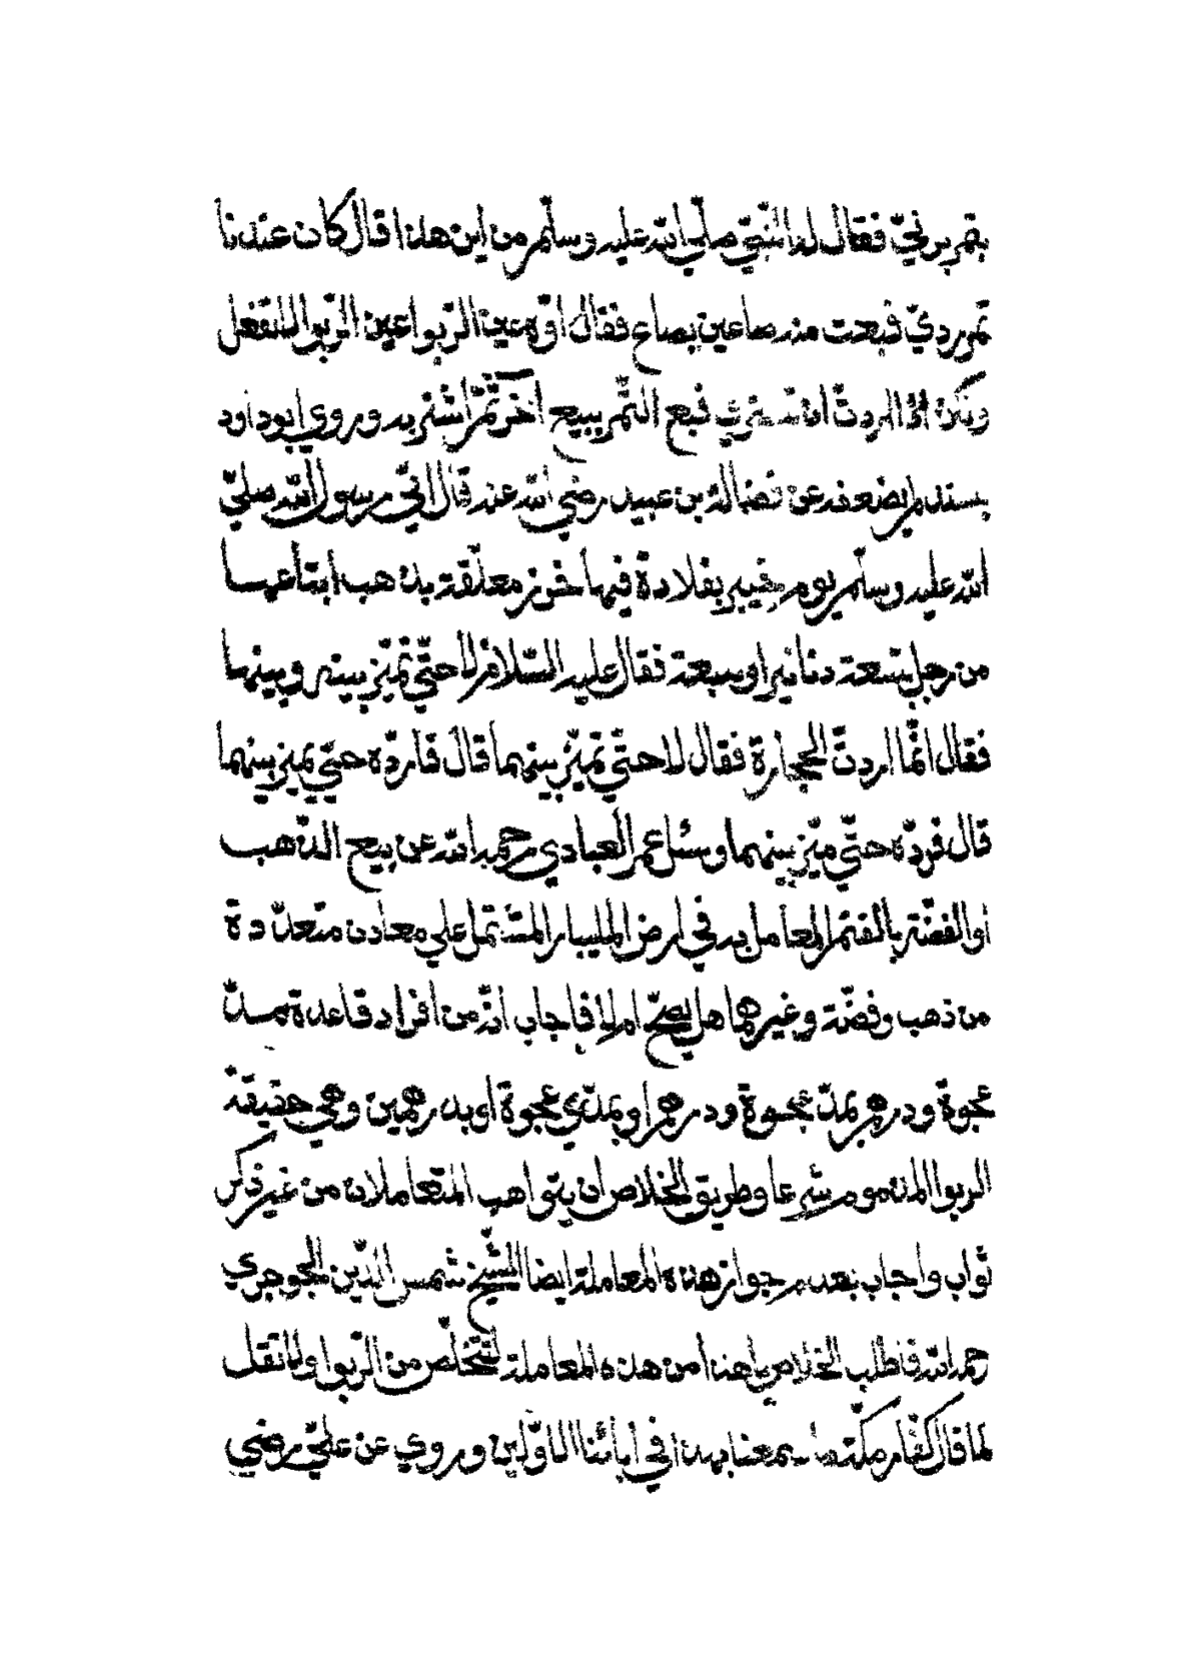 بتمر برنيّ فقال له النّبيّ صلّي الله عليه وسلّم من اين هذا قال كان عندنا
تمر رديّ فبعت منه صاعين بصاع فقال اوّه عين الرّبوا عين الرّبوا لا تفعل
ولكن اذا اردتّ ان تشتري فبع التّمر ببيع آخر ثمّ اشتر به وروي ابو داود
بسند لم يضعفه عن فضالة بن عبيد رضي الله عنه قال اتي رسول الله صلّي
الله عليه وسلّم يوم خيبر بقلادة فيها خرز معلّقة بذهب ابتاعها
من رجل بتسعة دنانير او سبعة فقال عليه السّلام لا حتّي تميّز بينه وبينها
فقال انّما اردتّ الحجارة فقال لا حتّي تميّز بينهما قال فاردّه حتّي يميز بينهما
قال فردّه حتّي ميّز بينهما وسئل عمر العبادي رحمه الله عن بيع الذّهب
او الفضّة بالفنم المعامل به في ارض المليبار المشتمل علي معادن متعدّدة
من ذهب وفضّة وغيرهما هل يصحّ ام لا فاجاب انّه من افراد قاعدة بمدّ
عجوة ودرهم بمدّ عجوة ودرهم او بمدّي عجوة او بدرهمين وهي حقيقة
الربوا المذموم شرعا وطريق الخلاص ان يتواهب المتعاملان من غير ذكر
ثواب واجاب بعدم جواز هذه المعاملة ايضا الشّيخ شمس الدّين الجوجري
رحمه الله فاطلب الخلاص ياهذا من هذه المعاملة لتتخلّص من الرّبوا ولا تقل
كما قال كفّار مكّة ما سمعنا بهذا في آبائنا الاوّلين وروي عن عليّ رضي